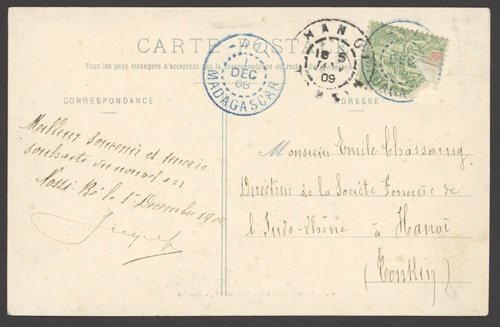 CARTE POSTALE
Tous les pays étrangers n'acceptent pas la correspondance au recto
CORRESPONDANCE
ADRESSE
DEC
08
MADAGASCAR
HANOI
18-5
JAN
09
DEC
Meilleur souvenir et sincères
souhaits du nouvel an
Nossi-Bé le 1er Décembre 1908
Monsieur Emile Chassaing
Directeur de la Société Foncière de
l'Indo-Chine à Hanoï
(Tonkin)